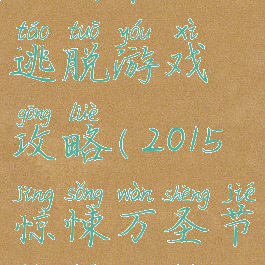 táo tuō yóu xì
逃脱游戏
gōng lüè
攻略(2015
jīng sǒng wàn shèng jié
惊悚万圣节